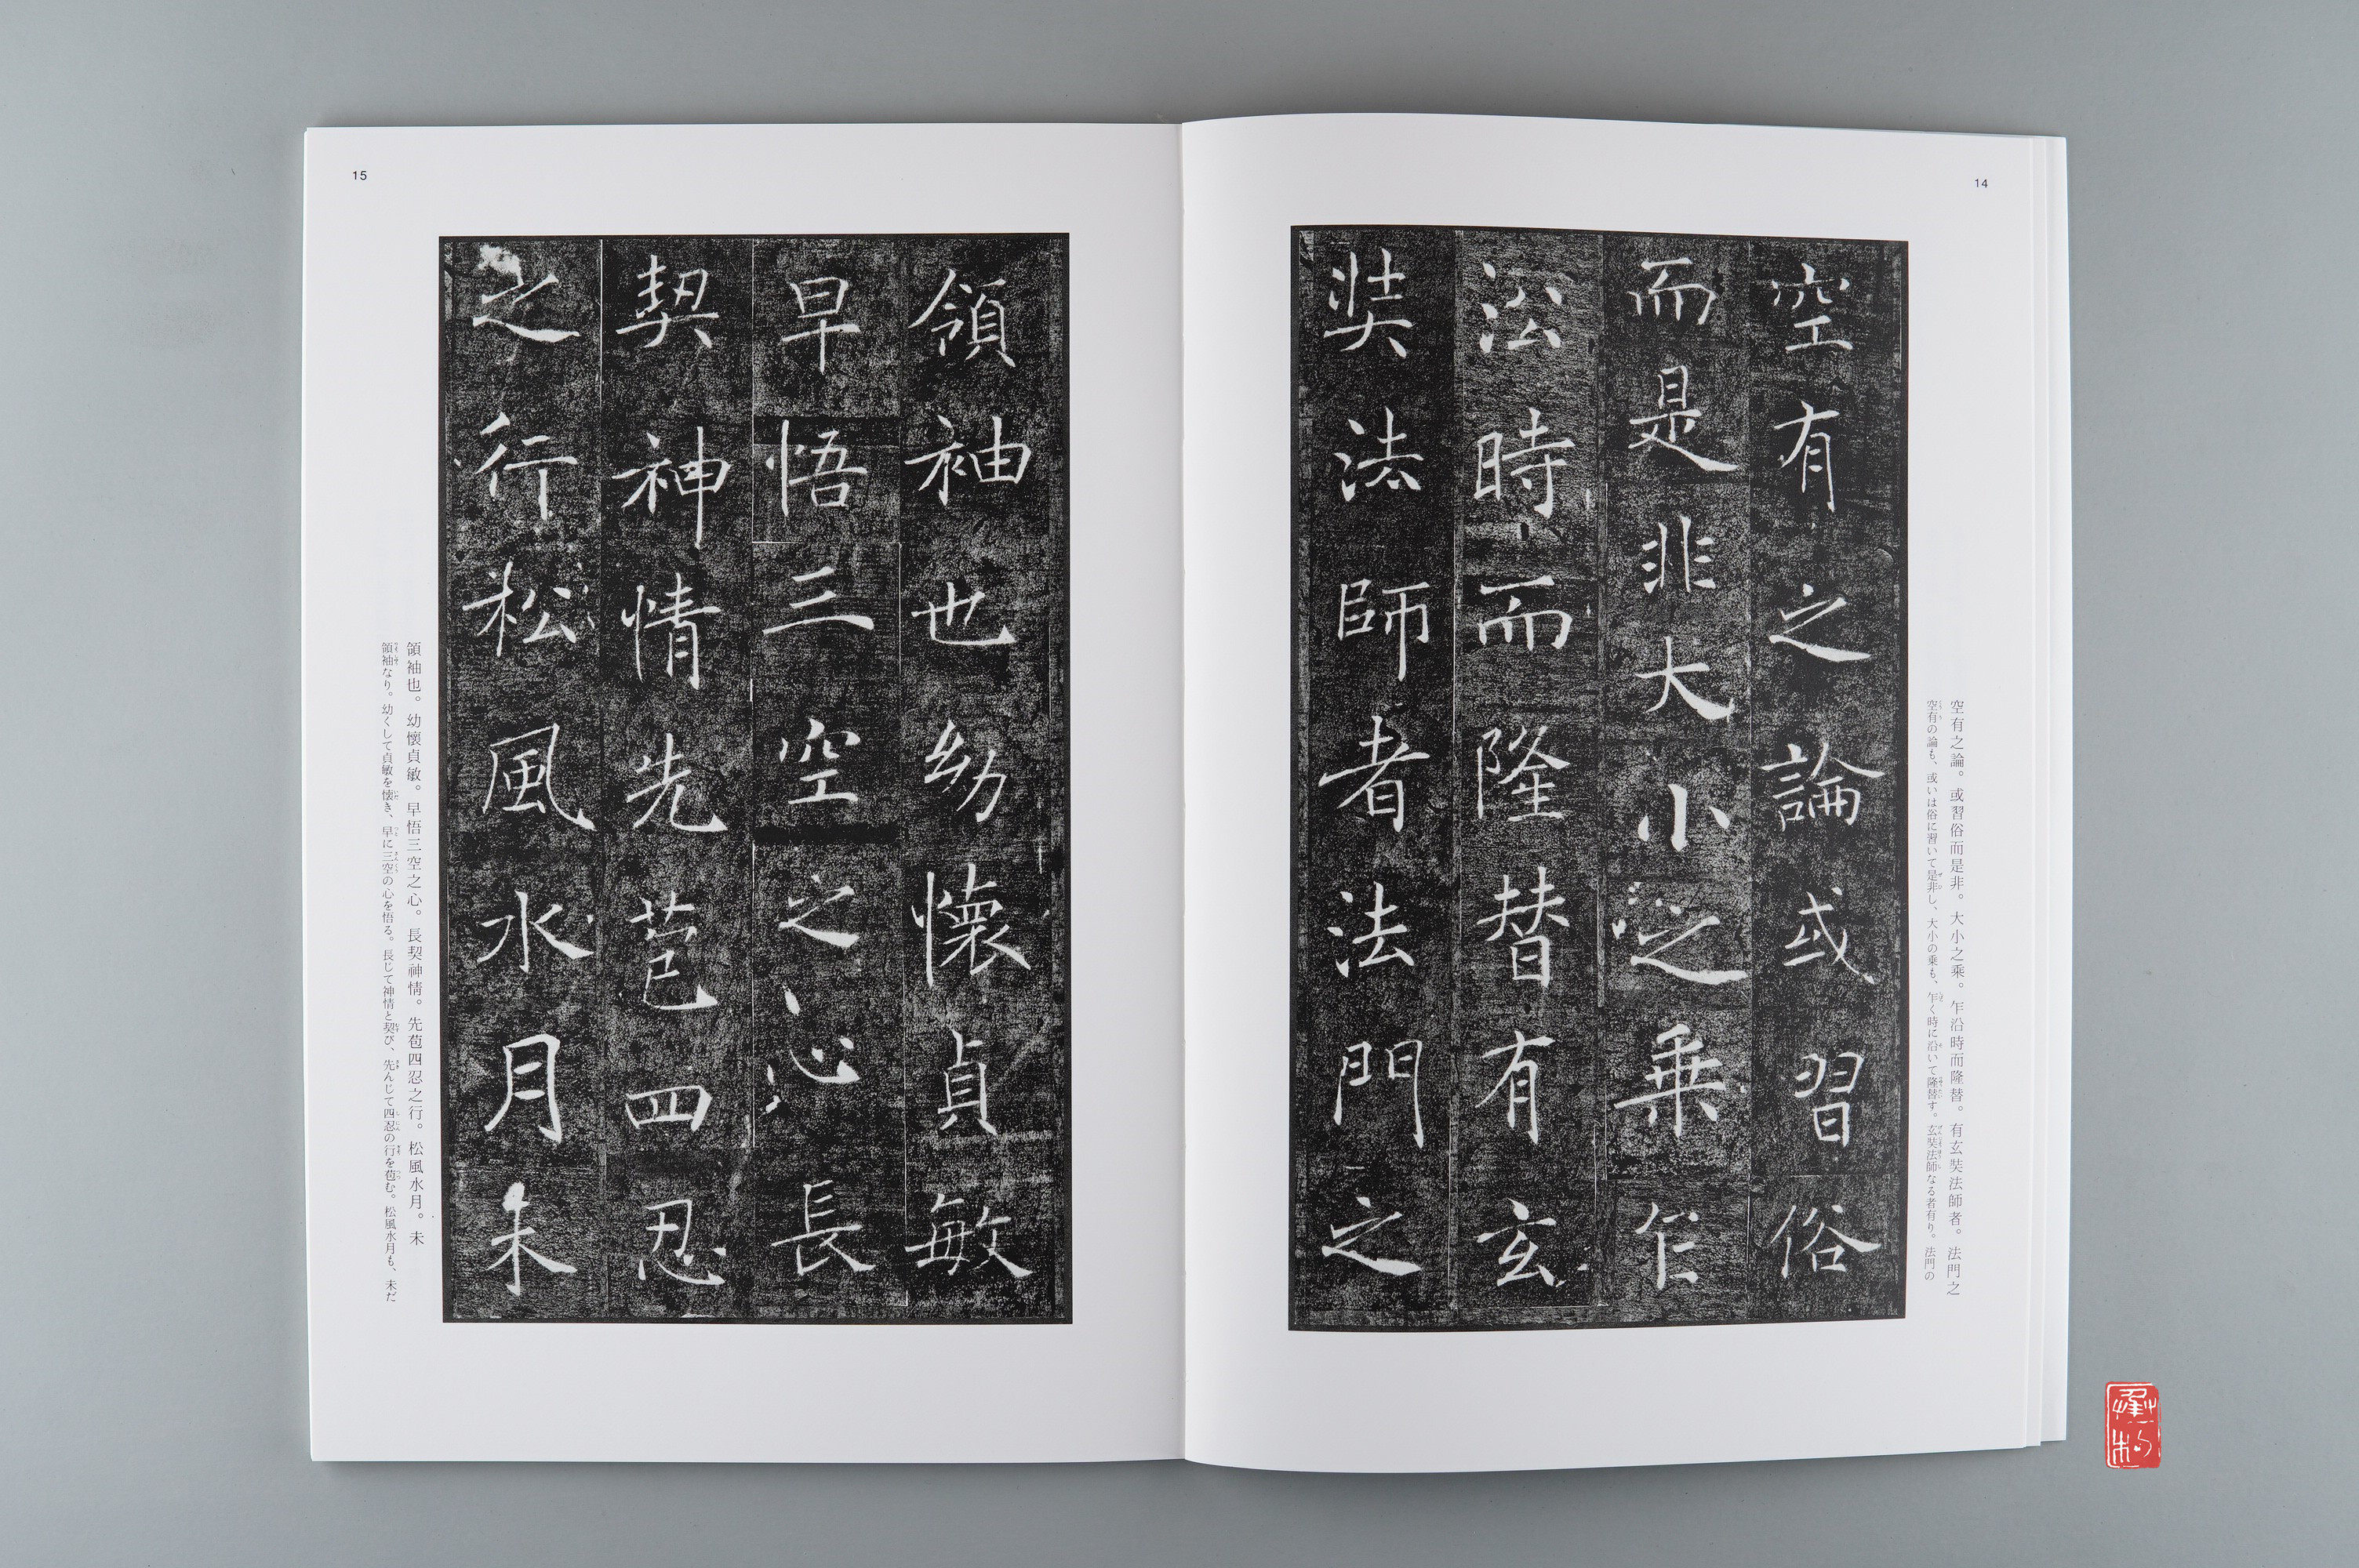 14
空有之論或習俗
而是非大小之乗乍
㳂時而隆替有玄
奘法師者法門之
空有之論。或習俗而是非。大小之乘。乍沿時而隆替。有玄奘法師者。法門之
空有の論も、或いは俗に習いて是非し、大小の乗も、乍く時に沿いて隆替す。玄奘法師なる者有り。法門の
15
領袖也幼懷貞敏
早悟三空之心長
契神情先苞四忍
之行松風水月未
領袖也。幼懷貞敏。早悟三空之心。長契神情。先苞四忍之行。松風水月。未
領袖なり。幼くして貞敏を懐き、早に三空の心を悟る。長じて神情と契び、先んじて四忍の行を苞む。松風水月も、未だ